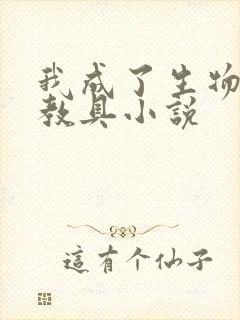 我成了生物
教具小説
這有个仙子